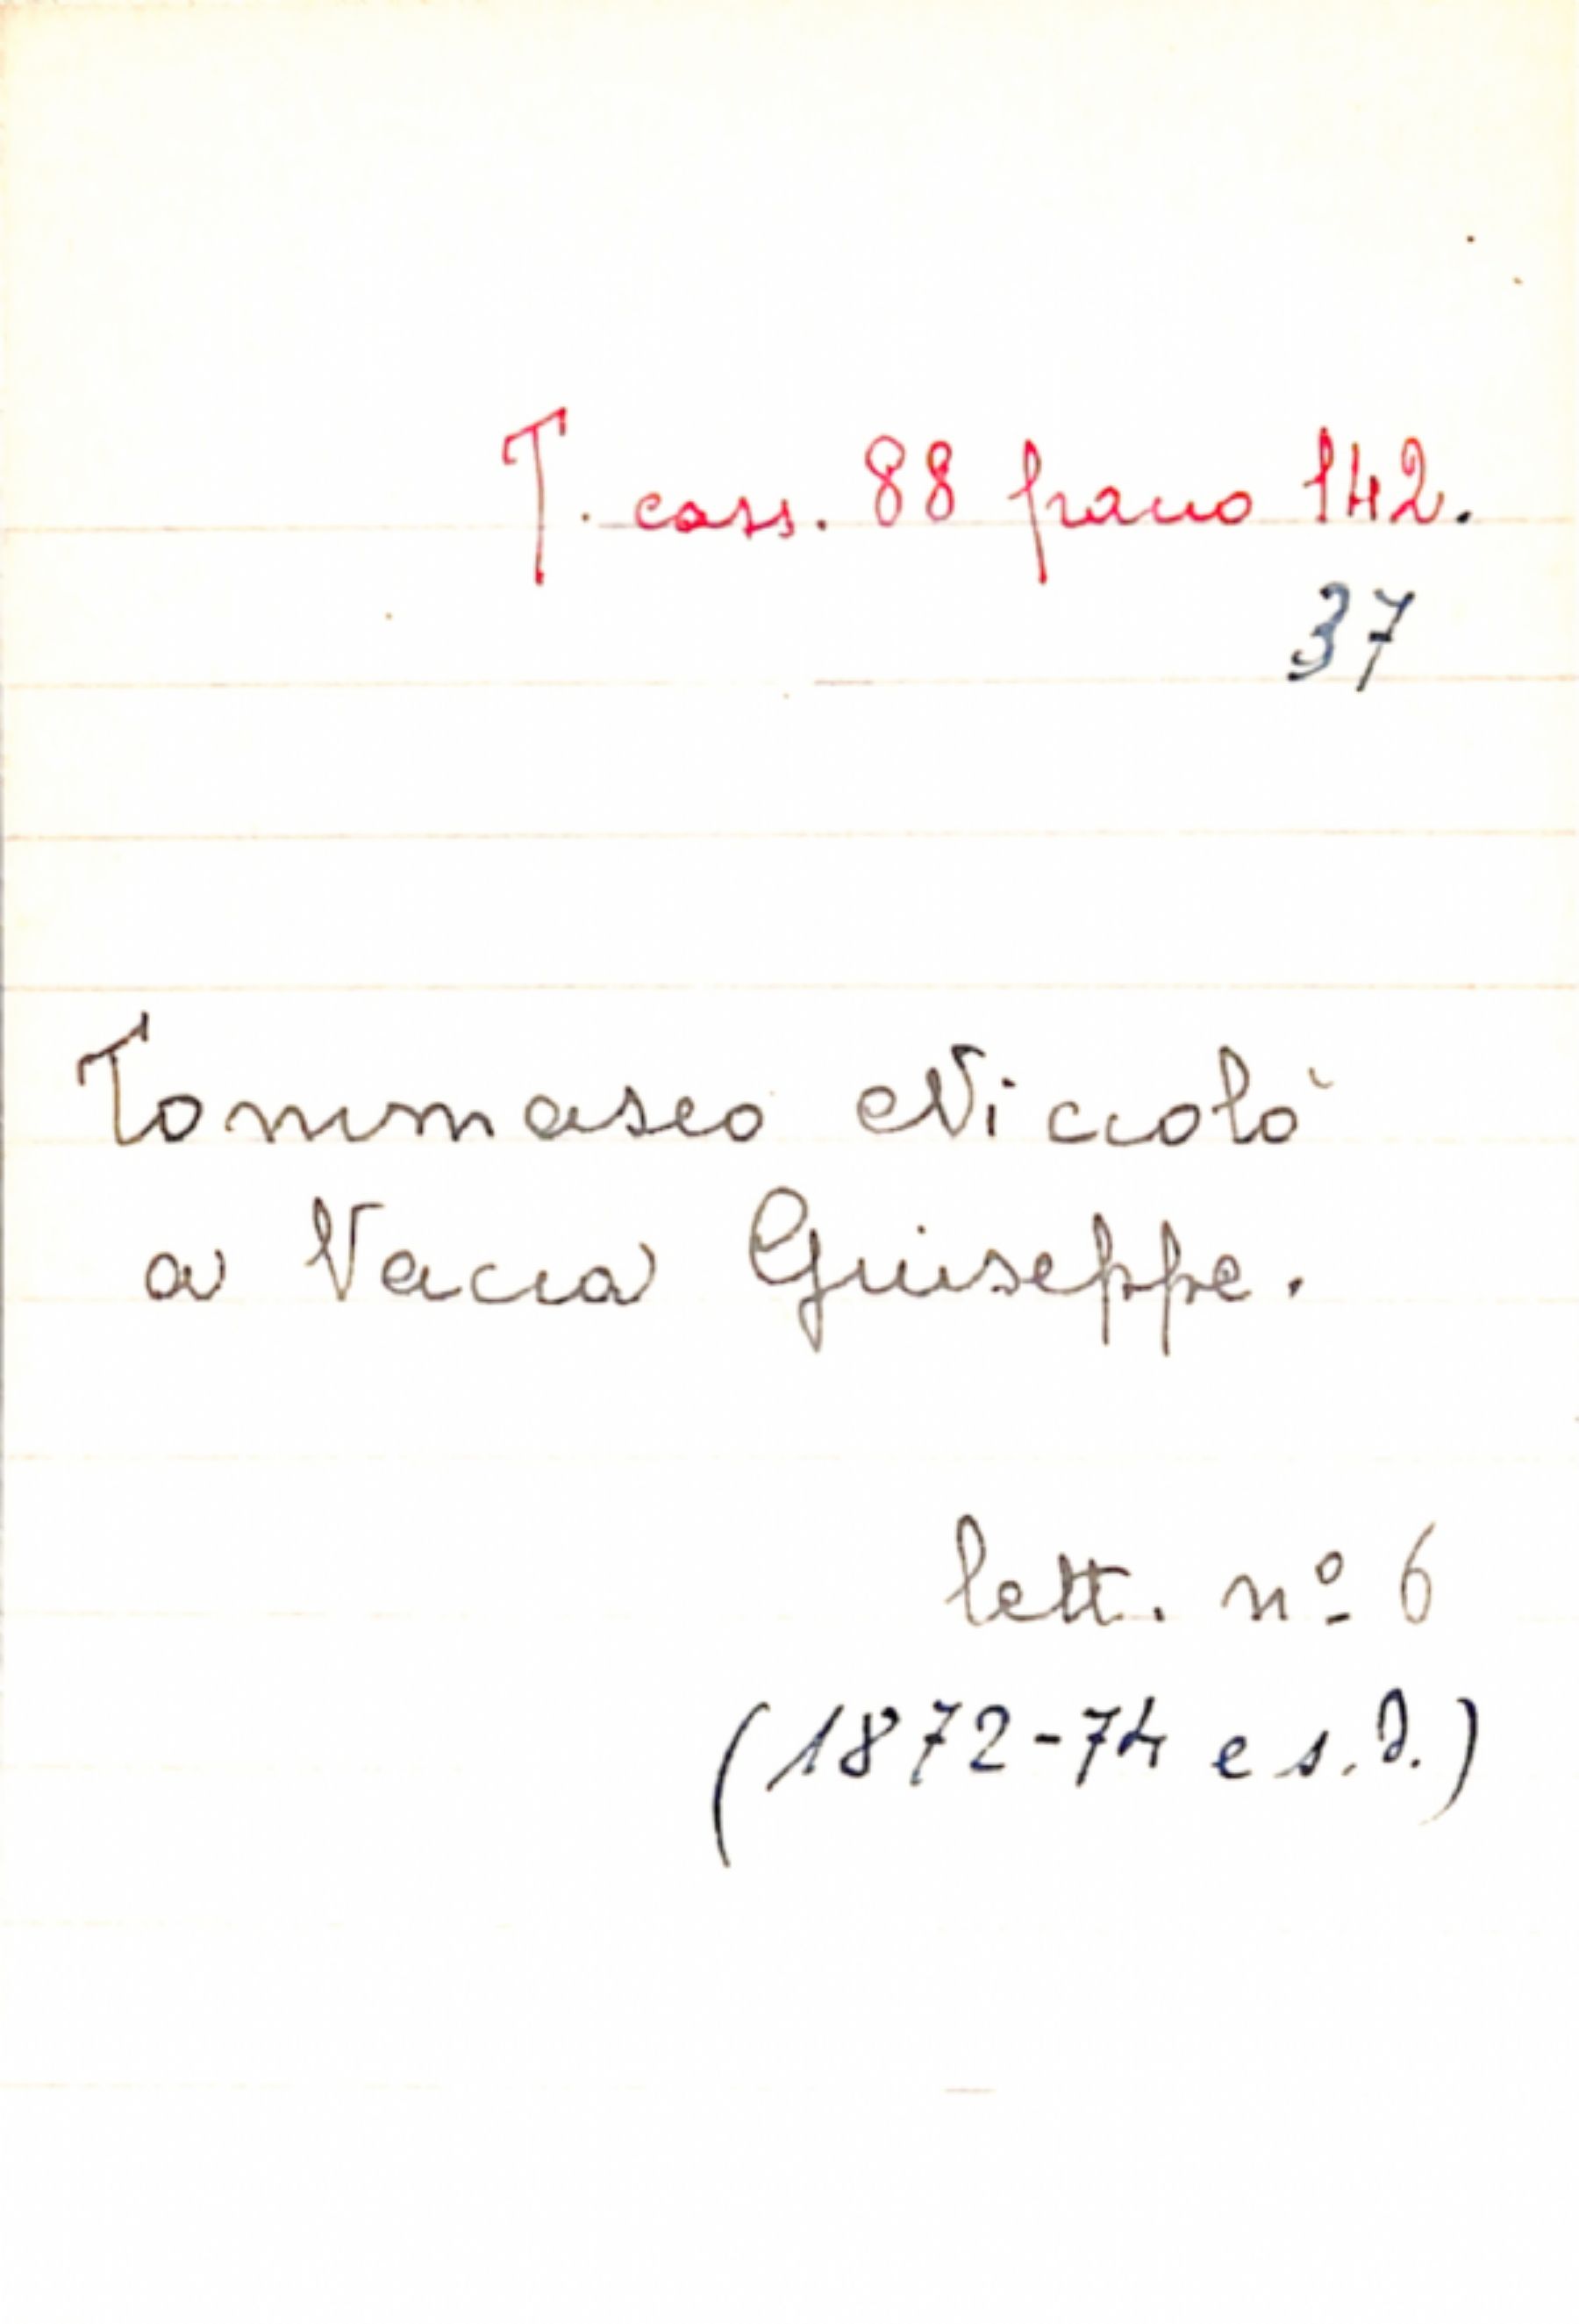 T. cass. 88 frano 142.
37
Tommaseo Niccolò
a Vacca Giuseppe.
lett. nº 6
(1872-74 e s.d.)